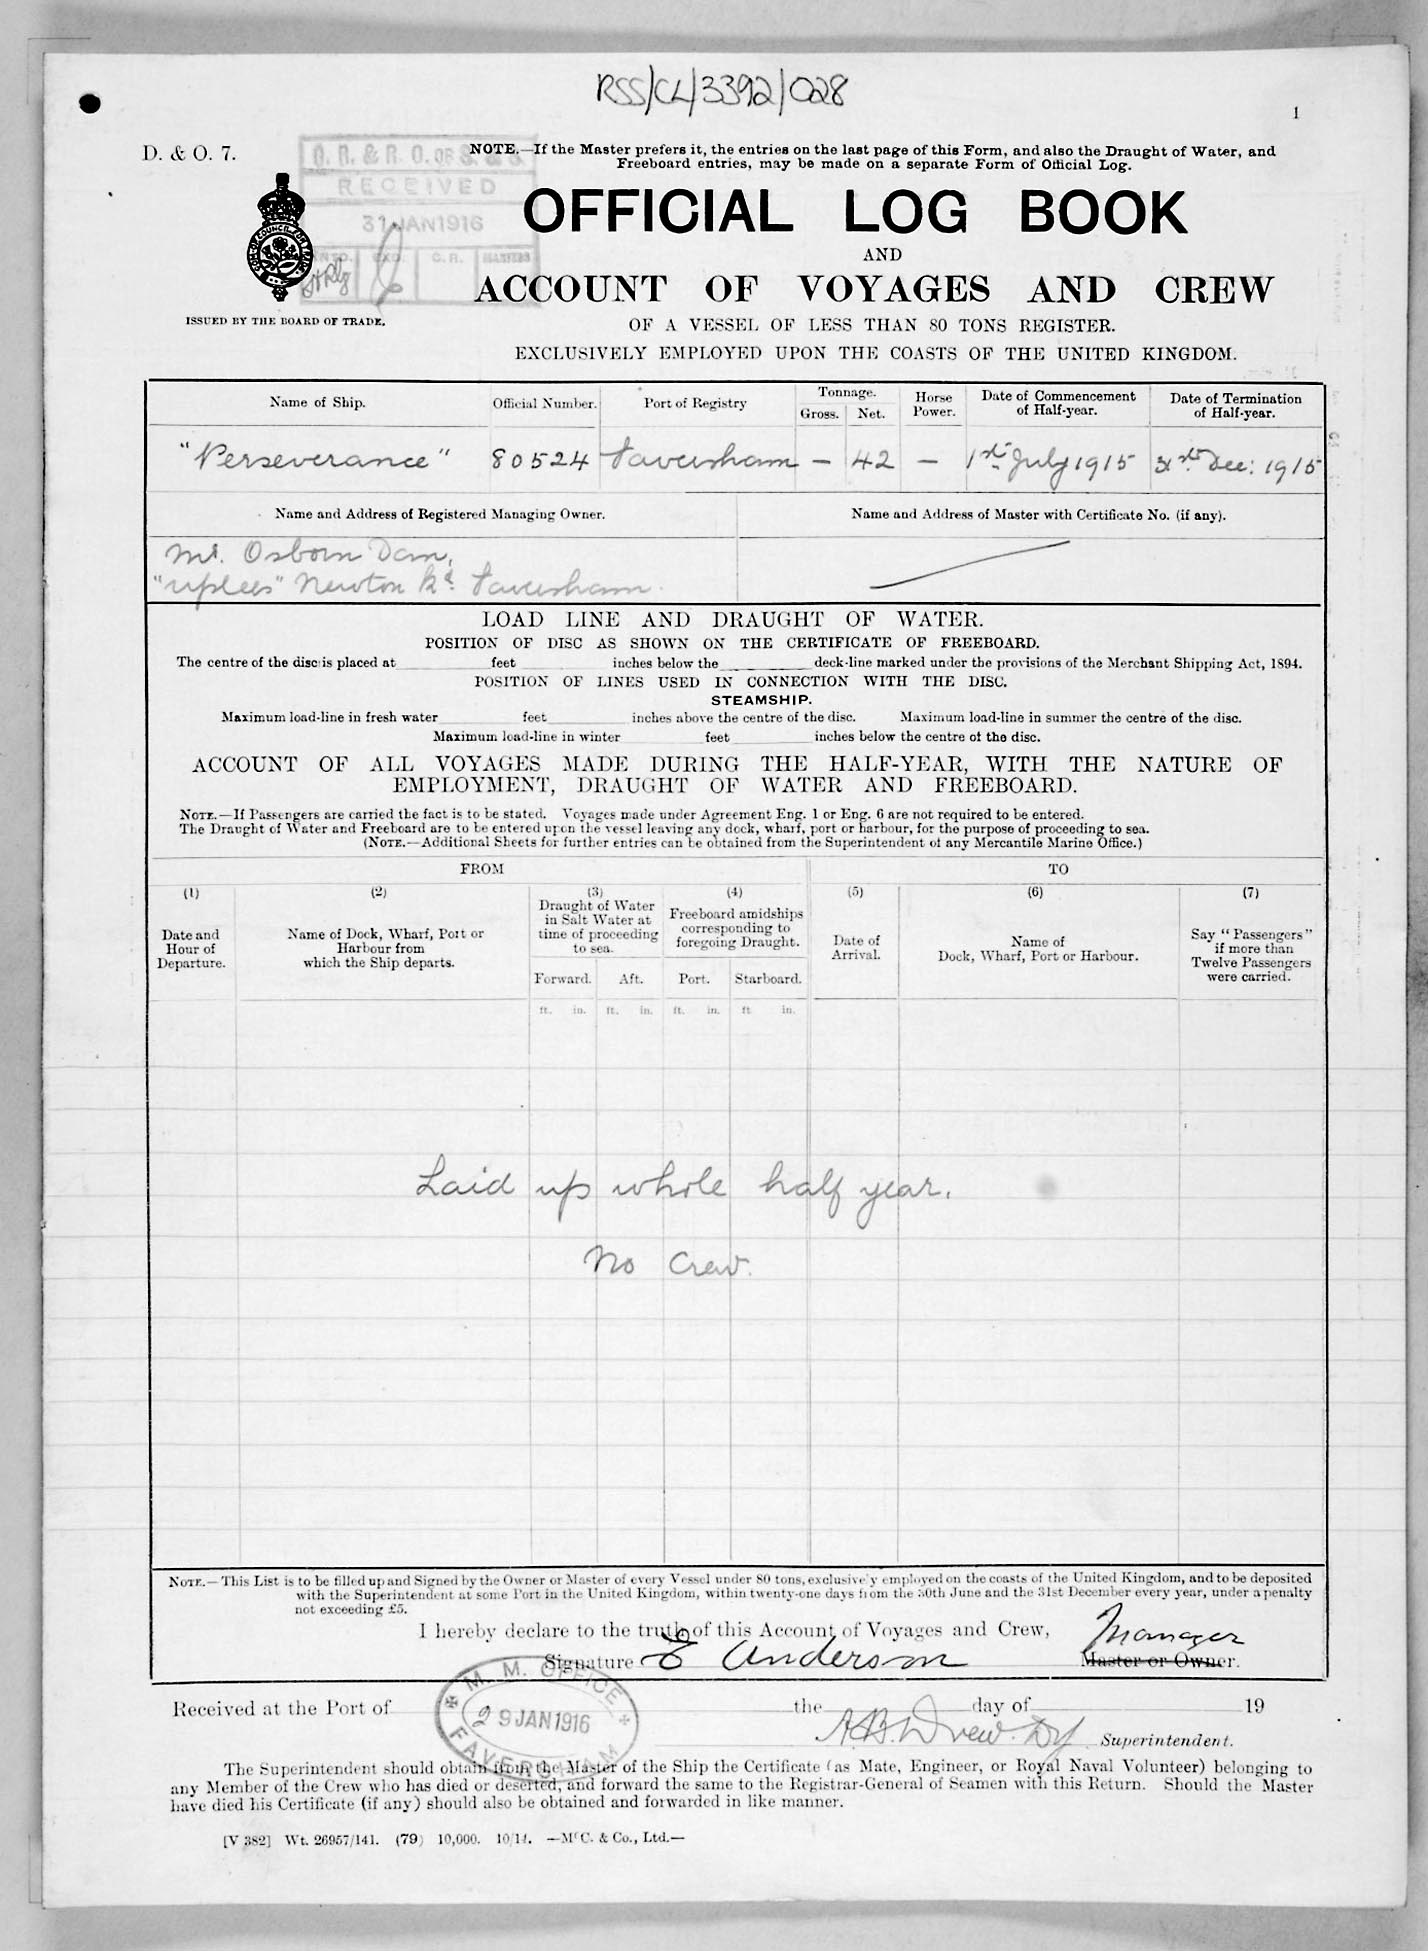 RSS/CL/3392/028
1
D. & O. 7.
NOTE.—If the Master prefers it, the entries on the last page of this Form, and also the Draught of Water, and
Freeboard entries, may be made on a separate Form of Official Log.
RECEIVED
31 JAN 1916
C. R.
OFFICIAL LOG BOOK
AND
ACCOUNT OF VOYAGES AND CREW
ISSUED BY THE BOARD OF TRADE.
OF A VESSEL OF LESS THAN 80 TONS REGISTER.
EXCLUSIVELY EMPLOYED UPON THE COASTS OF THE UNITED KINGDOM.
Name of Ship. Official Number. Port of Registry Tonnage. Gross. Net. Horse Power. Date of Commencement of Half-year. Date of Termination of Half-year.
"Perseverance" 80524 Faversham — 42 — 1st July 1915 31st Dec: 1915
Name and Address of Registered Managing Owner. Name and Address of Master with Certificate No. (if any).
Mr. Osborn Dan,
"Uplees" Newton Rd. Faversham.
LOAD LINE AND DRAUGHT OF WATER.
POSITION OF DISC AS SHOWN ON THE CERTIFICATE OF FREEBOARD.
The centre of the disc is placed at feet inches below the deck-line marked under the provisions of the Merchant Shipping Act, 1894.
POSITION OF LINES USED IN CONNECTION WITH THE DISC.
STEAMSHIP.
Maximum load-line in fresh water feet inches above the centre of the disc. Maximum load-line in summer the centre of the disc.
Maximum load-line in winter feet inches below the centre of the disc.
ACCOUNT OF ALL VOYAGES MADE DURING THE HALF-YEAR, WITH THE NATURE OF
EMPLOYMENT, DRAUGHT OF WATER AND FREEBOARD.
NOTE.—If Passengers are carried the fact is to be stated. Voyages made under Agreement Eng. 1 or Eng. 6 are not required to be entered.
The Draught of Water and Freeboard are to be entered upon the vessel leaving any dock, wharf, port or harbour, for the purpose of proceeding to sea.
(NOTE.—Additional Sheets for further entries can be obtained from the Superintendent of any Mercantile Marine Office.)
FROM TO
(1) (2) (3) (4) (5) (6) (7)
Date and Hour of Departure.
Name of Dock, Wharf, Port or Harbour from which the Ship departs.
Draught of Water in Salt Water at time of proceeding to sea.
Freeboard amidships corresponding to foregoing Draught.
Date of Arrival.
Name of Dock, Wharf, Port or Harbour.
Say "Passengers" if more than Twelve Passengers were carried.
Forward. Aft. Port. Starboard.
ft. in. ft. in. ft. in. ft in.
Laid up whole half year.
No Crew.
NOTE.—This List is to be filled up and Signed by the Owner or Master of every Vessel under 80 tons, exclusively employed on the coasts of the United Kingdom, and to be deposited
with the Superintendent at some Port in the United Kingdom, within twenty-one days from the 30th June and the 31st December every year, under a penalty
not exceeding £5.
I hereby declare to the truth of this Account of Voyages and Crew,
Manager
Signature E Anderson Master or Owner.
M. M. OFFICE
29 JAN 1916
FAVERSHAM
Received at the Port of the day of 19
A.B. Drew. Dy Superintendent.
The Superintendent should obtain from the Master of the Ship the Certificate (as Mate, Engineer, or Royal Naval Volunteer) belonging to
any Member of the Crew who has died or deserted, and forward the same to the Registrar-General of Seamen with this Return. Should the Master
have died his Certificate (if any) should also be obtained and forwarded in like manner.
[V 382] Wt. 26957/141. (79) 10,000. 10/14. —McC. & Co., Ltd.—